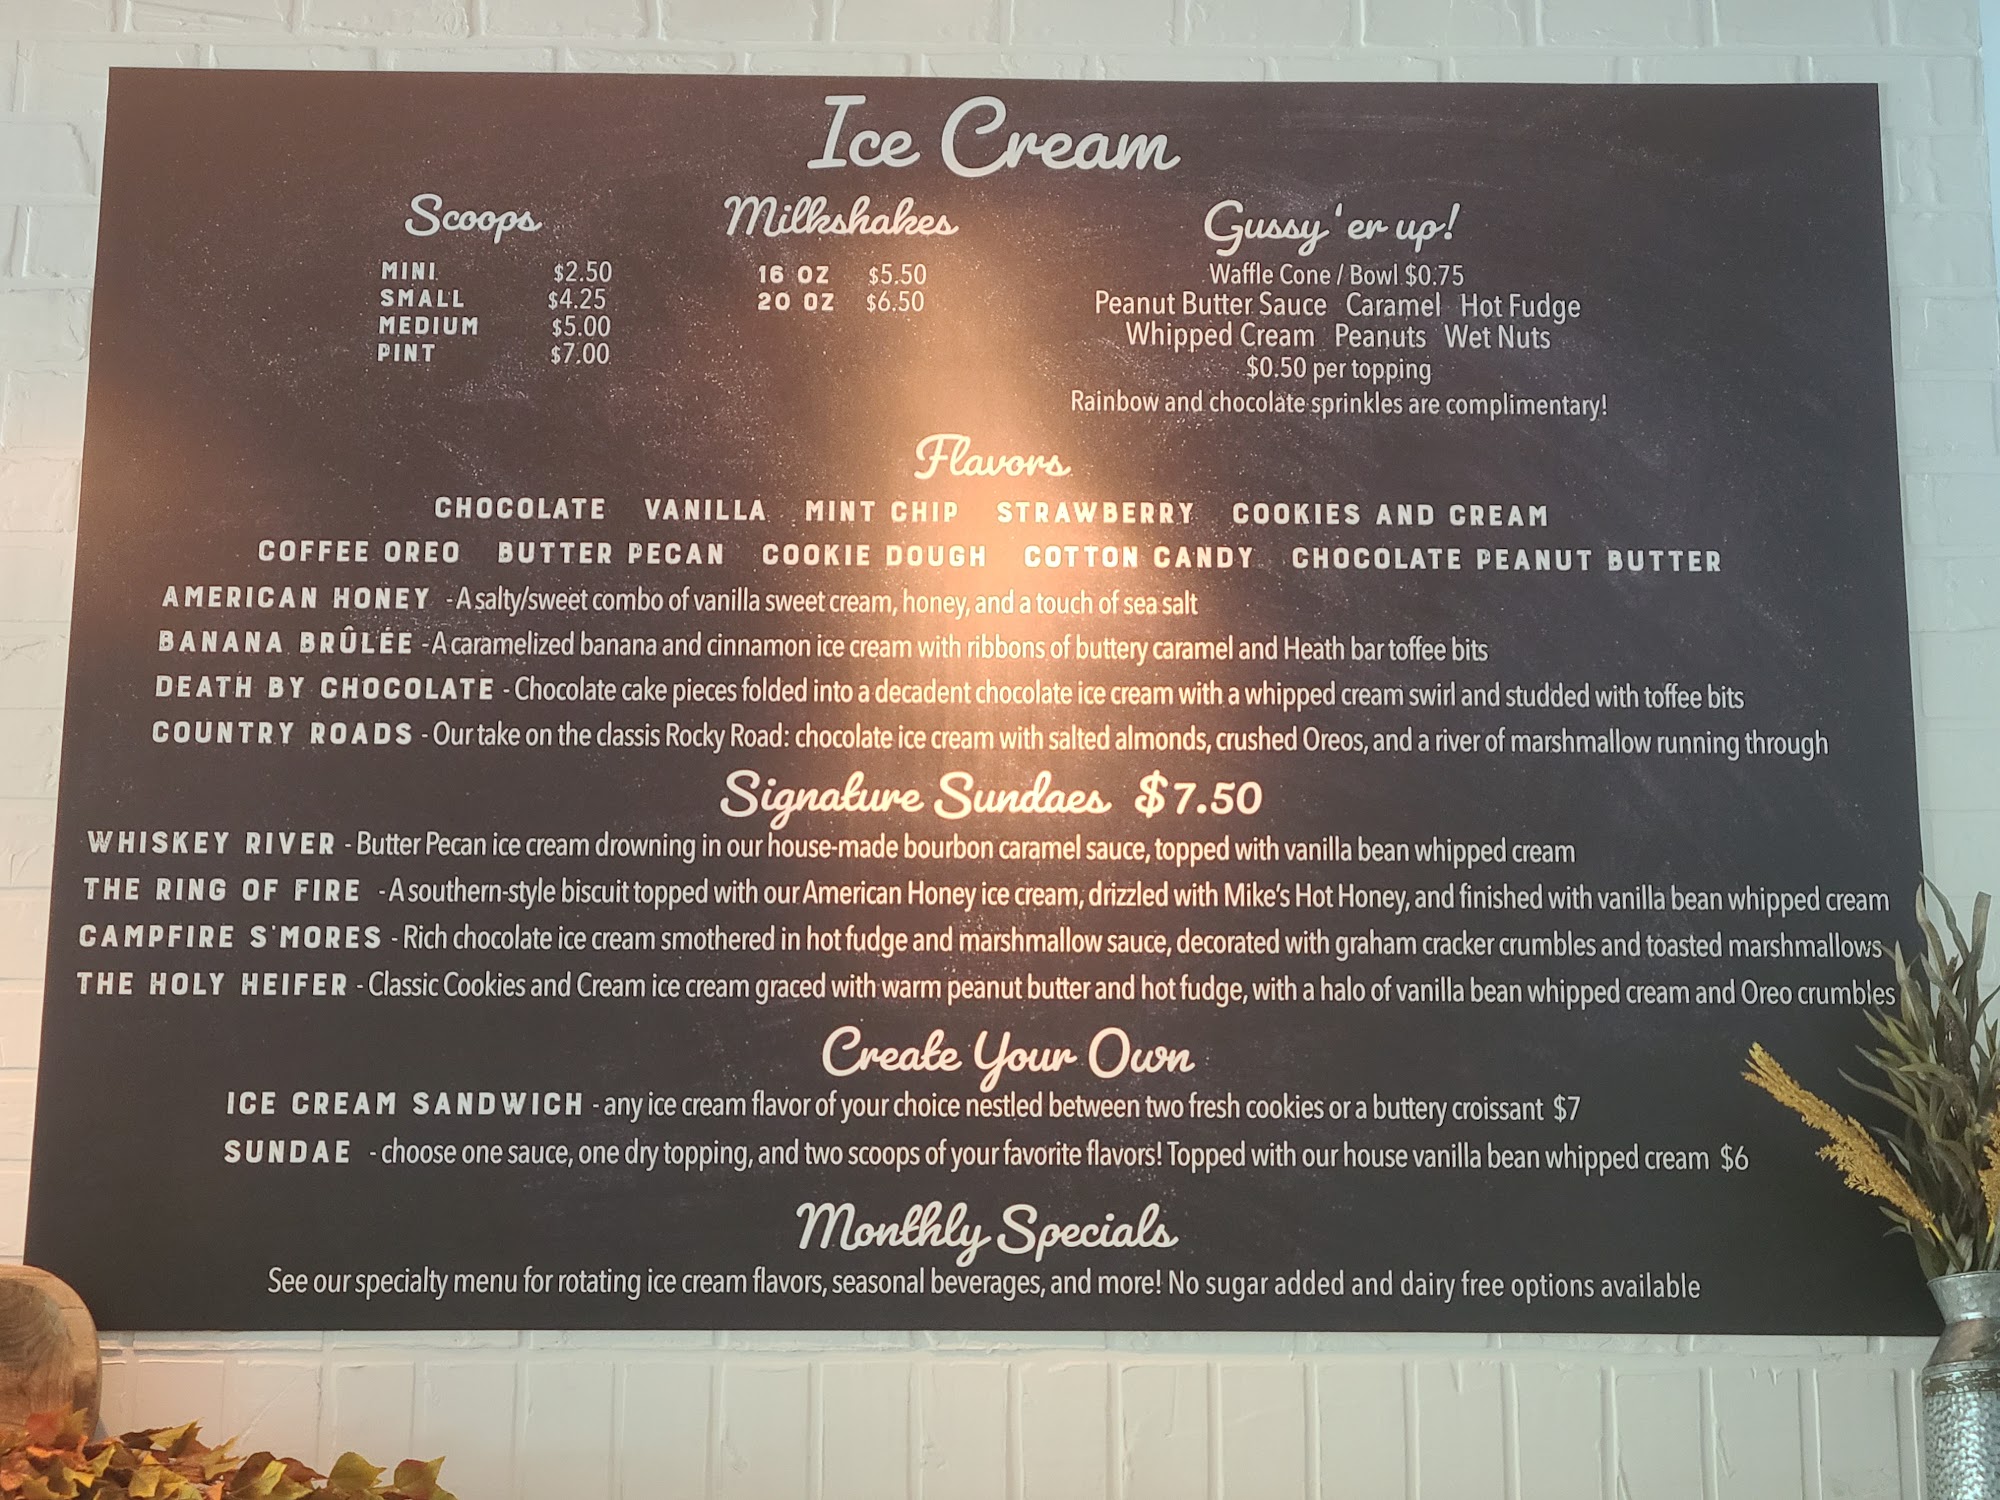 Ice Cream
Scoops
MINI $2.50
SMALL $4.25
MEDIUM $5.00
PINT $7.00
Milkshakes
16 OZ $5.50
20 OZ $6.50
Gussy 'er up!
Waffle Cone / Bowl $0.75
Peanut Butter Sauce Caramel Hot Fudge
Whipped Cream Peanuts Wet Nuts
$0.50 per topping
Rainbow and chocolate sprinkles are complimentary!
Flavors
CHOCOLATE VANILLA MINT CHIP STRAWBERRY COOKIES AND CREAM
COFFEE OREO BUTTER PECAN COOKIE DOUGH COTTON CANDY CHOCOLATE PEANUT BUTTER
AMERICAN HONEY - A salty/sweet combo of vanilla sweet cream, honey, and a touch of sea salt
BANANA BRÛLÉE - A caramelized banana and cinnamon ice cream with ribbons of buttery caramel and Heath bar toffee bits
DEATH BY CHOCOLATE - Chocolate cake pieces folded into a decadent chocolate ice cream with a whipped cream swirl and studded with toffee bits
COUNTRY ROADS - Our take on the classis Rocky Road: chocolate ice cream with salted almonds, crushed Oreos, and a river of marshmallow running through
Signature Sundaes $7.50
WHISKEY RIVER - Butter Pecan ice cream drowning in our house-made bourbon caramel sauce, topped with vanilla bean whipped cream
THE RING OF FIRE - A southern-style biscuit topped with our American Honey ice cream, drizzled with Mike's Hot Honey, and finished with vanilla bean whipped cream
CAMPFIRE S'MORES - Rich chocolate ice cream smothered in hot fudge and marshmallow sauce, decorated with graham cracker crumbles and toasted marshmallows
THE HOLY HEIFER - Classic Cookies and Cream ice cream graced with warm peanut butter and hot fudge, with a halo of vanilla bean whipped cream and Oreo crumbles
Create Your Own
ICE CREAM SANDWICH - any ice cream flavor of your choice nestled between two fresh cookies or a buttery croissant $7
SUNDAE - choose one sauce, one dry topping, and two scoops of your favorite flavors! Topped with our house vanilla bean whipped cream $6
Monthly Specials
See our specialty menu for rotating ice cream flavors, seasonal beverages, and more! No sugar added and dairy free options available